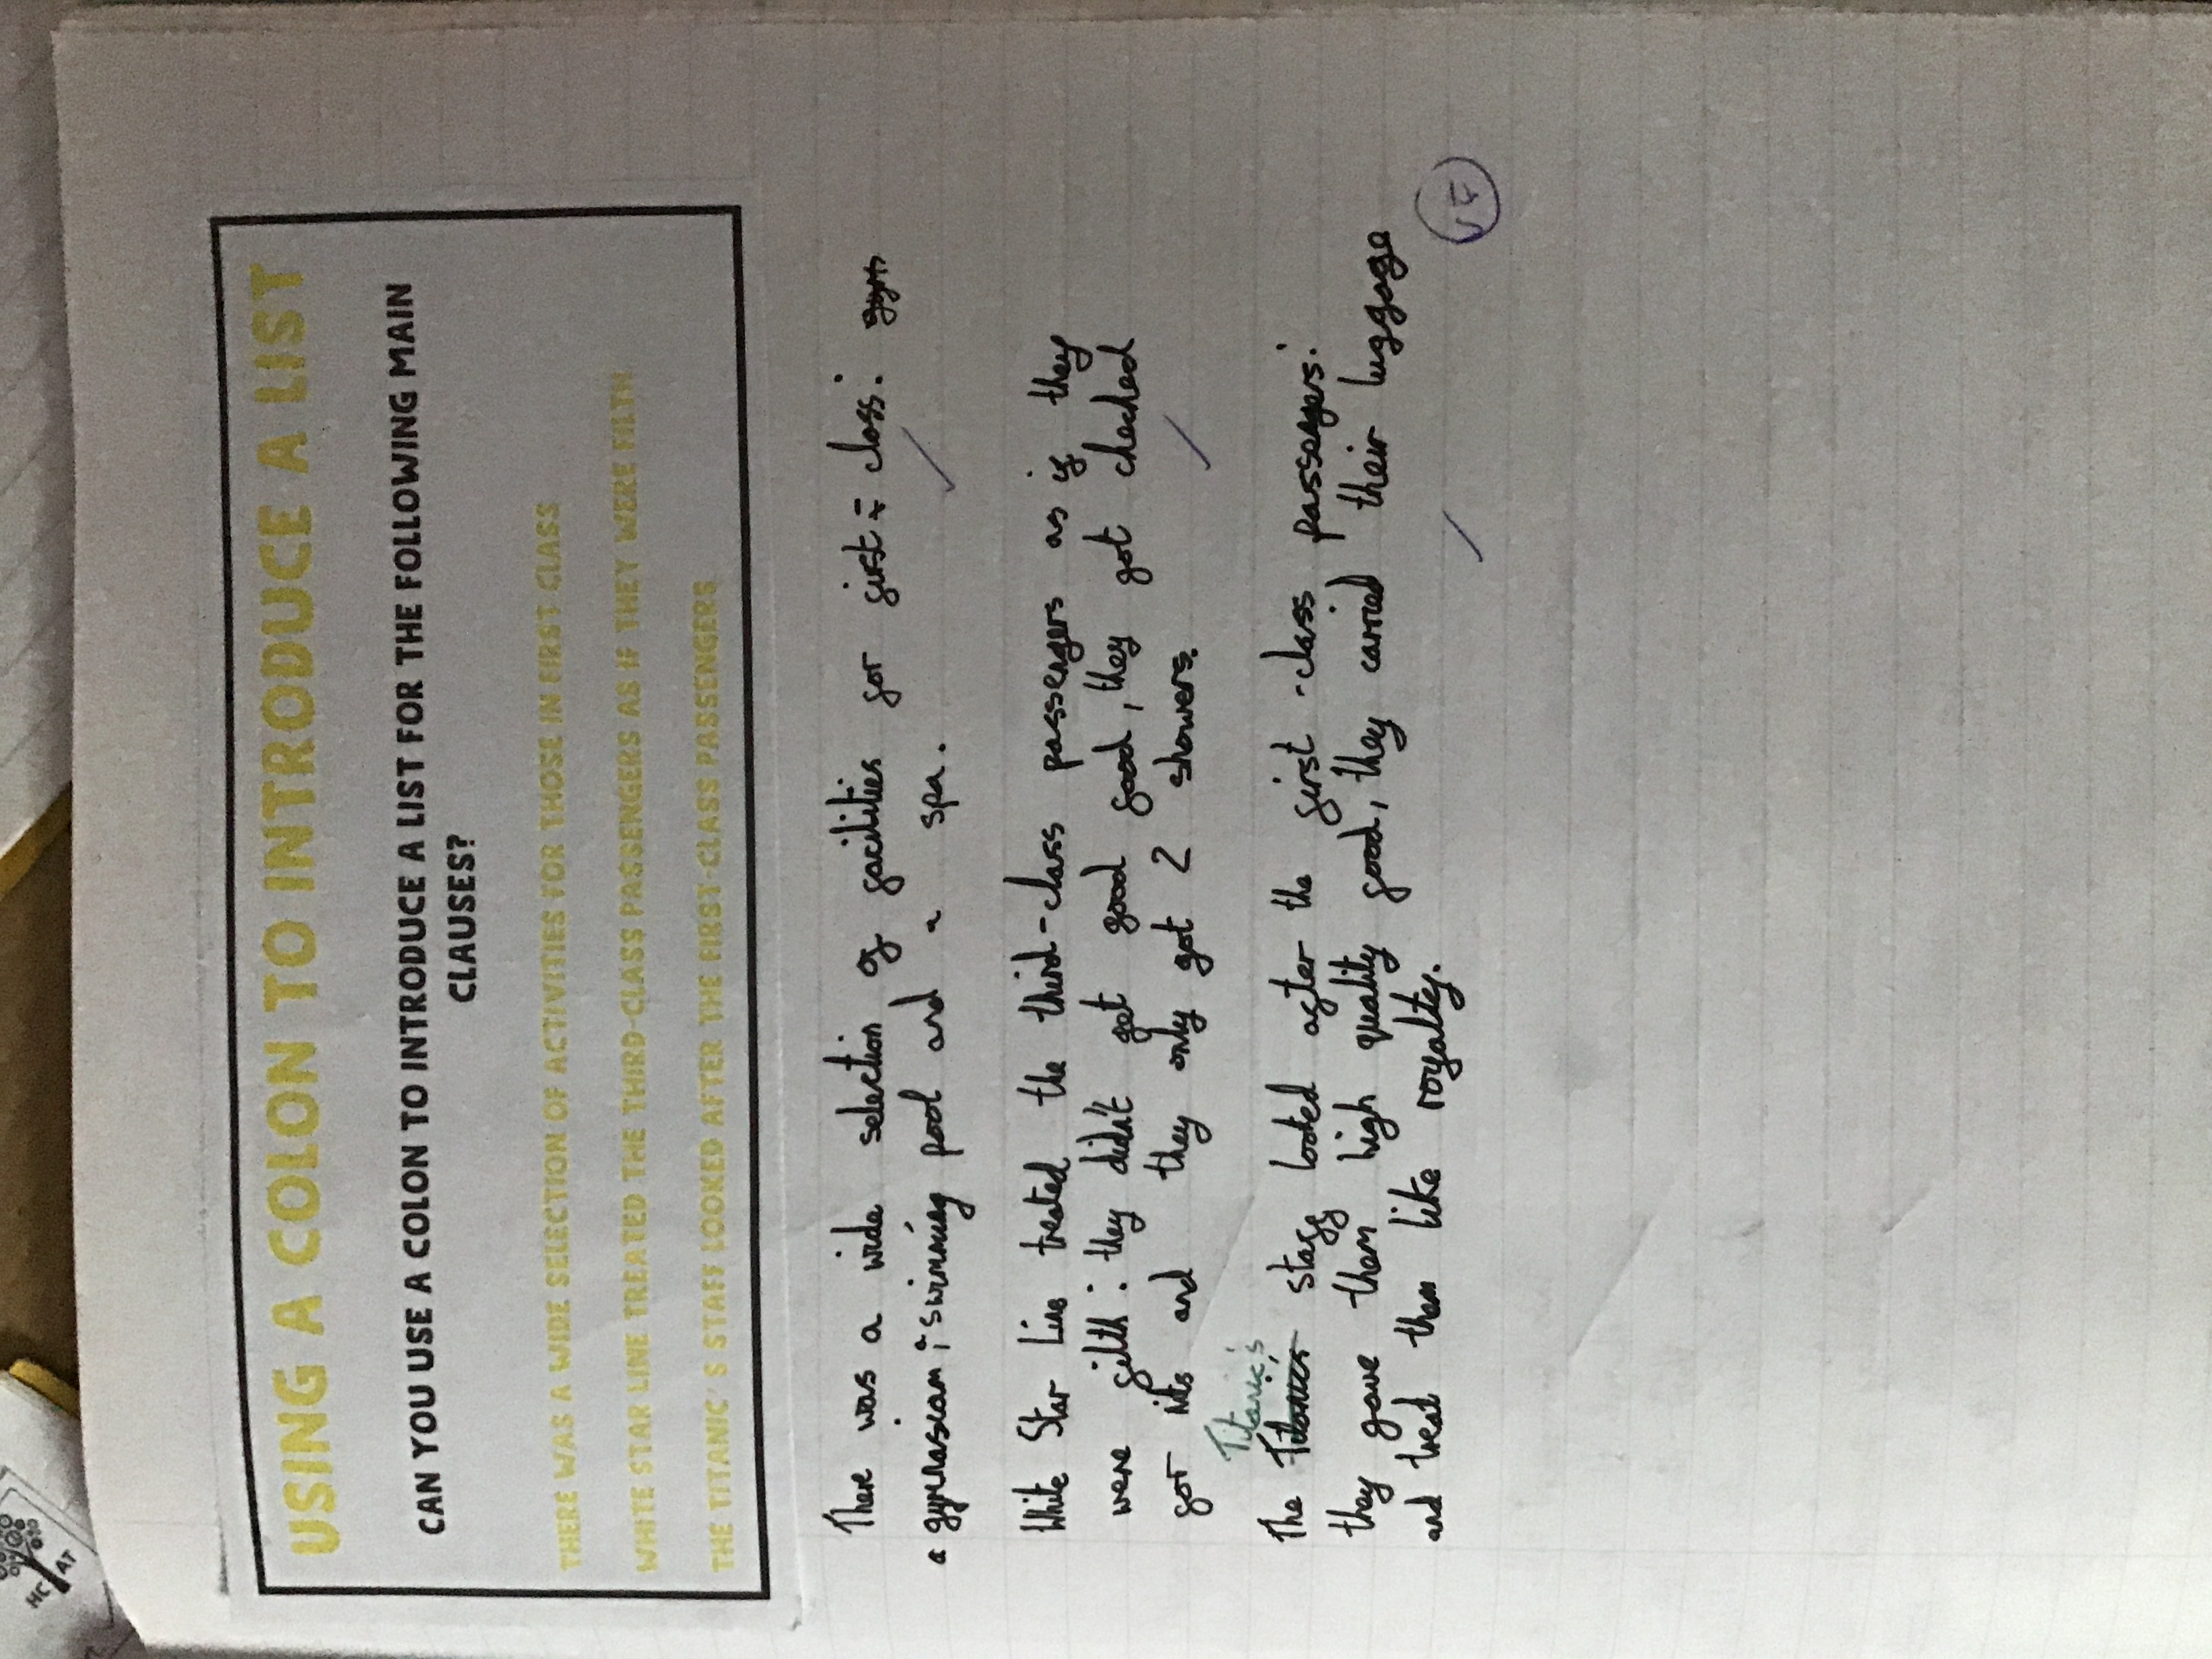 USING A COLON TO INTRODUCE A LIST
CAN YOU USE A COLON TO INTRODUCE A LIST FOR THE FOLLOWING MAIN
CLAUSES?
THERE WAS A WIDE SELECTION OF ACTIVITIES FOR THOSE IN FIRST CLASS
WHITE STAR LINE TREATED THE THIRD-CLASS PASSENGERS AS IF THEY WERE FILTH
THE TITANIC'S STAFF LOOKED AFTER THE FIRST-CLASS PASSENGERS
There was a wide selection of facilities for first class: gym
a gymnasium, a swimming pool and a spa.
White Star Line treated the third-class passengers as if they
were filth: they didn't get good food, they got checked
for nits and they only got 2 showers.
Titanic's
The Titanics staff looked after the first-class passegers:
they gave them high quality food, they carried their luggage
and treat them like royaltey.
VF
HC
AT